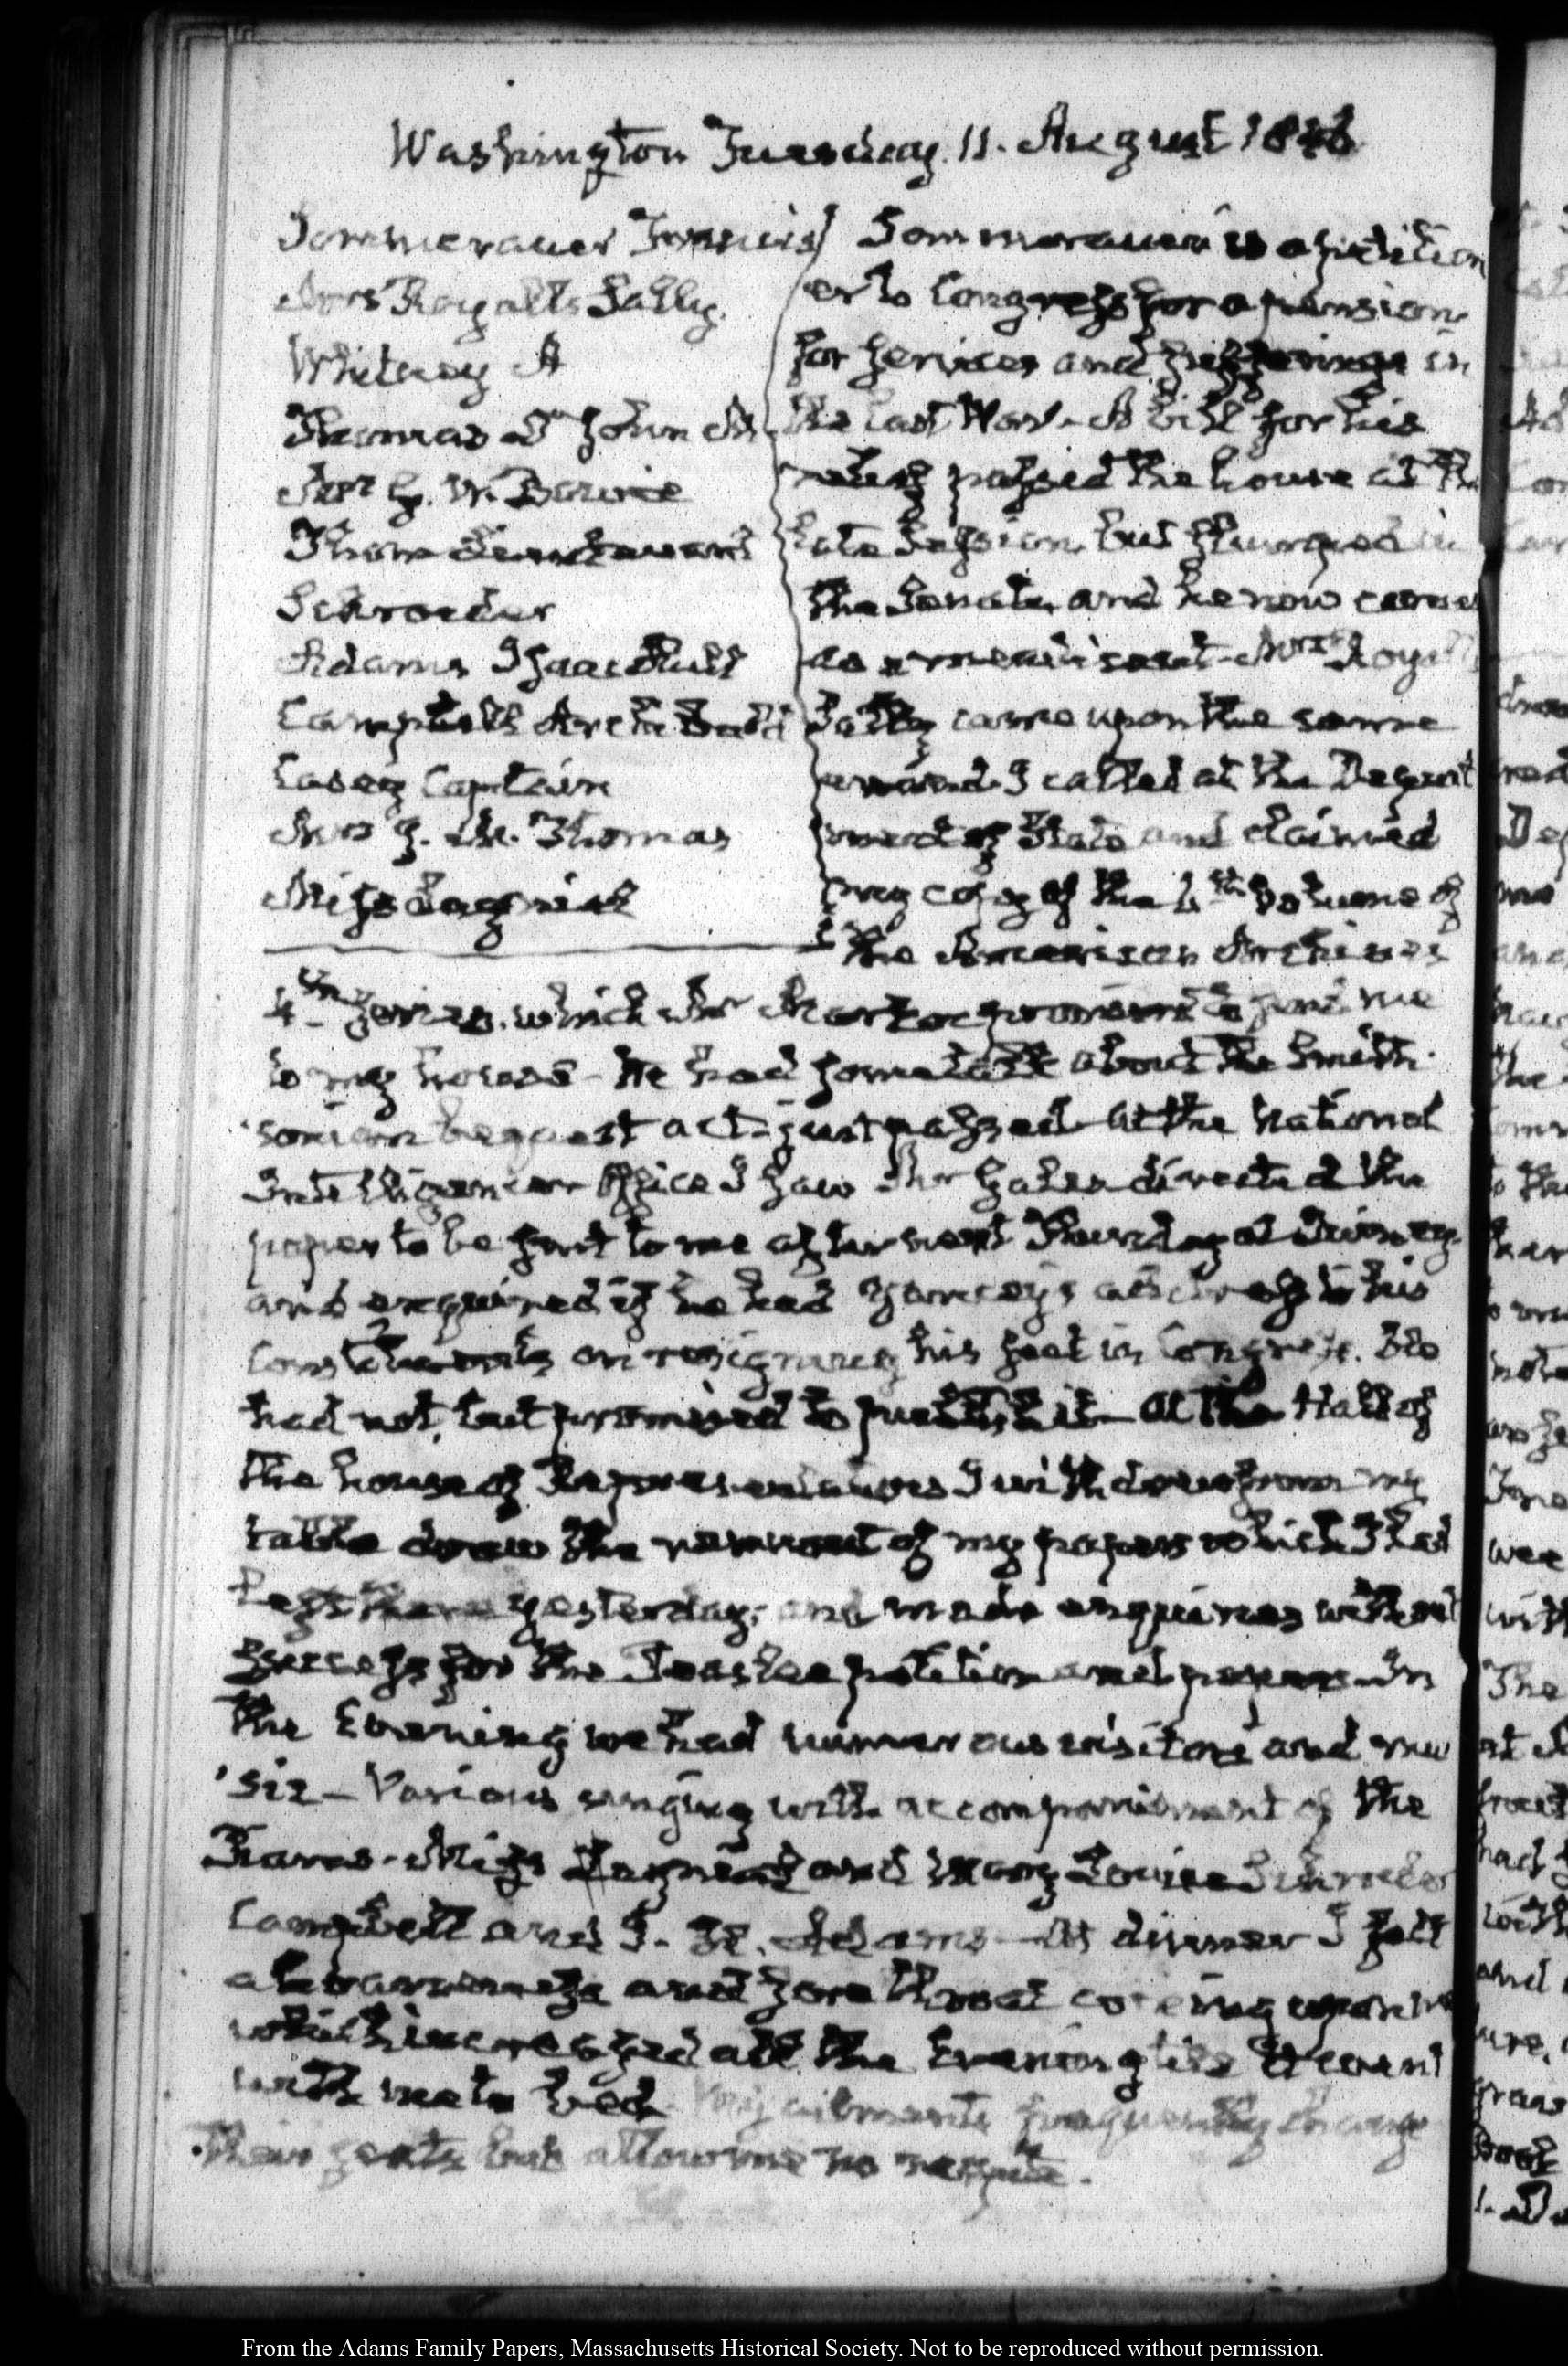 Washington Tuesday. 11. August 1846
Sommerauer
Mrs Royall Sally.
Whitney A
Thomas John M
Mrs
Thom
Schroeder
Adams Isaac Hull
Campbell Archibald
Casey Captain
Mrs J. M. Thomas
Miss
Sommerauer is a petition
er to Congress for a pension
for services and sufferings in
the last War. A bill for his
relief passed the house at the
late Session, but
the Senate, and he now comes
as a mendicant. Mrs Royall
Sally came upon the same
errand. I called at the Depart
ment of State and claimed
my copy of the 6th Volume of
the American Archives
4th Series. which Mr Markoe promised to send me
to my house. He had some talk about the Smith-
sonian bequest act just passed. At the National
Intelligencer Office I saw Mr Gales directed the
paper to be sent to me after next Thursday at Quincy.
and enquired if he had Yancey's address to his
Constituents on resigning his seat in Congress. He
had not, but promised to publish it. At the Hall of
the house of Representatives I withdrew from my
table drawer the remnant of my papers which I had
left there yesterday, and made enquiries without
success for the petition and papers. In
the Evening we had numerous visitors and mu
sic. Various singing with accompaniment of the
Piano. Miss and Mary Louisa Schroeder
Campbell and I. H. Adams. At dinner I felt
a hoarseness and sore throat coming upon me
which increased all the Evening till it went
with me to bed. My ailments frequently change
their seats but allow me no respite.
From the Adams Family Papers, Massachusetts Historical Society. Not to be reproduced without permission.